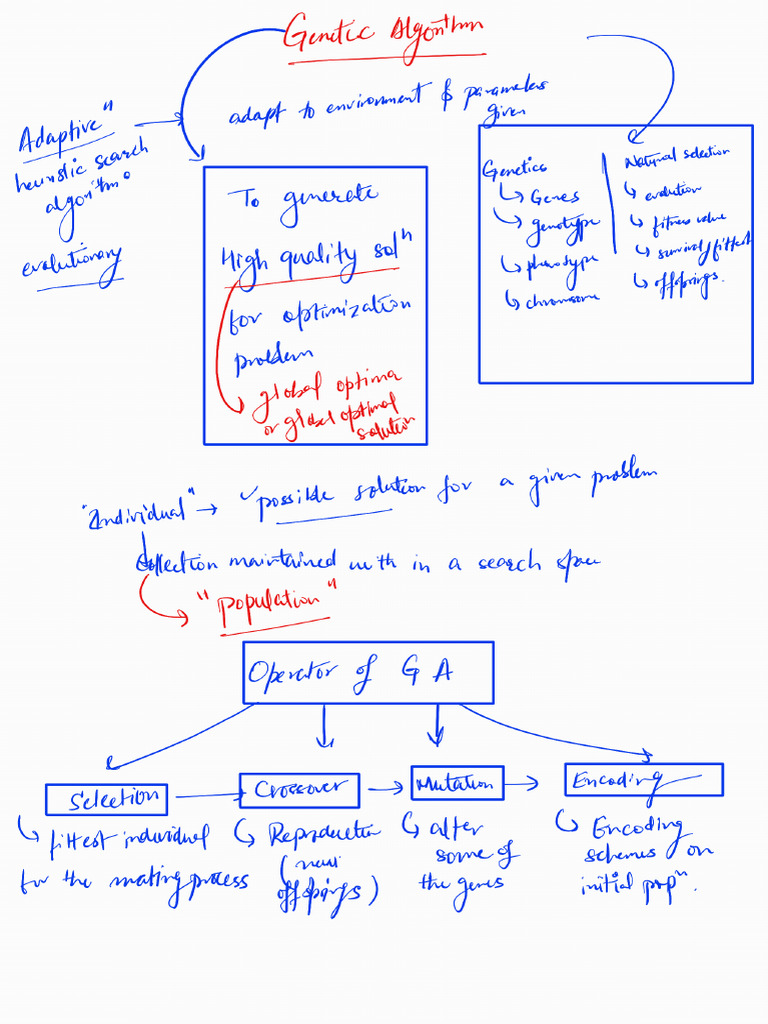 Genetic Algorithm
adapt to environment & parameters
given
Adaptive"
heuristic search
algorithm.
evolutionary
To generate
High quality solⁿ
for optimization
problem
global optima
or global optimal
solution
Genetics
Genes
genotype
phenotype
chromosome
Natural selection
evolution
fitness value
survival/fittest
offsprings.
"Individual" → possible solution for a given problem
Collection maintained with in a search space
"Population"
Operator of GA
Selection
Crossover
Mutation
Encoding
fittest individual
for the mating process
Reproduction
(new
offspings)
alter
some of
the genes
Encoding
schemes on
initial popⁿ.